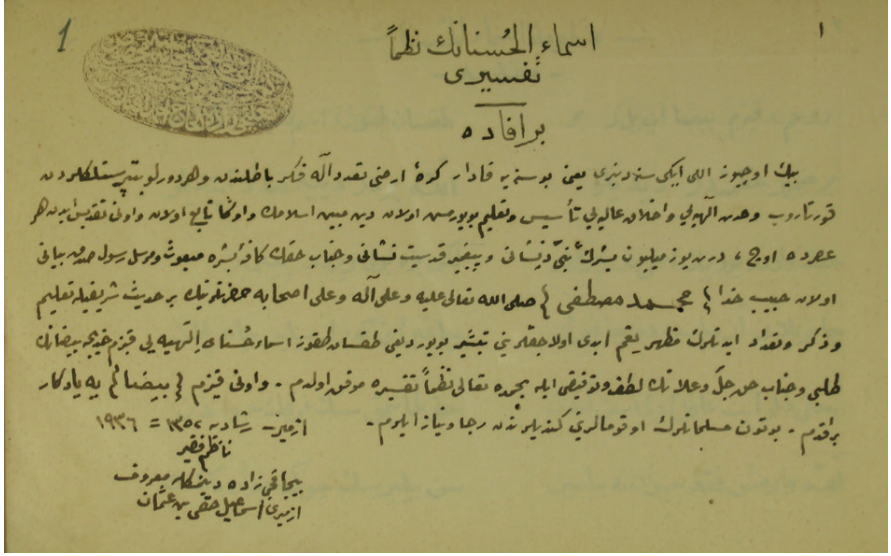 1
١
اسماء الحُسنانك نظماً
تفسيرى
بر افاده
بيك اوچيوز اللى ايكى سنه دنبرى يعنى بوسنه يه قادار كرۀ ارضى تعدد آلهه فكر باطلندن و هر دورلو بتپرستلكلردن
قورتاروب وحدت آلهيه يى و اخلاق عاليه يى تأسيس و تعليم بويورمش اولان دين مبين اسلامك و اوڭا تابع اولان و اونى تقديس ايدن هر
عصرده اوچ، درت يوز ميليون بشرك نبئ ذيشانى و پيغمبر قدسيت نشانى و جناب حقك كافۀ بشره مبعوث و مرسل رسول بيانى
اولان حبيب خدا { محمد مصطفى } صلى الله تعالى عليه و على آله و على اصحابه حضرتلرينك بر حديث شريفيله تعليم
و ذكر و تعداد ايدنلرك مظهر نعيم ابدى اولاجقلرينى تبشير بويورديغى طقسان طقوز اسماء حُسناء الٓهيه يى قيزم خديجه بيضانك
طلبى و جناب حق جلّ و علانك لطف و توفيقى ايله بحمده تعالى نظماً تفسيره موفق اولدم - و اونى قيزم { بيضا } م يه يادكار
براقدم - بوتون مسلمانلرك اوقومالرينى كنديلرندن رجا و نياز ايلرم -
ازمير - ١٣٥٢ = ١٩٣٦
ناظم فقير
بيچاقجى زاده ديمكله معروف
ازميرى اسماعيل حقى بن عثمان